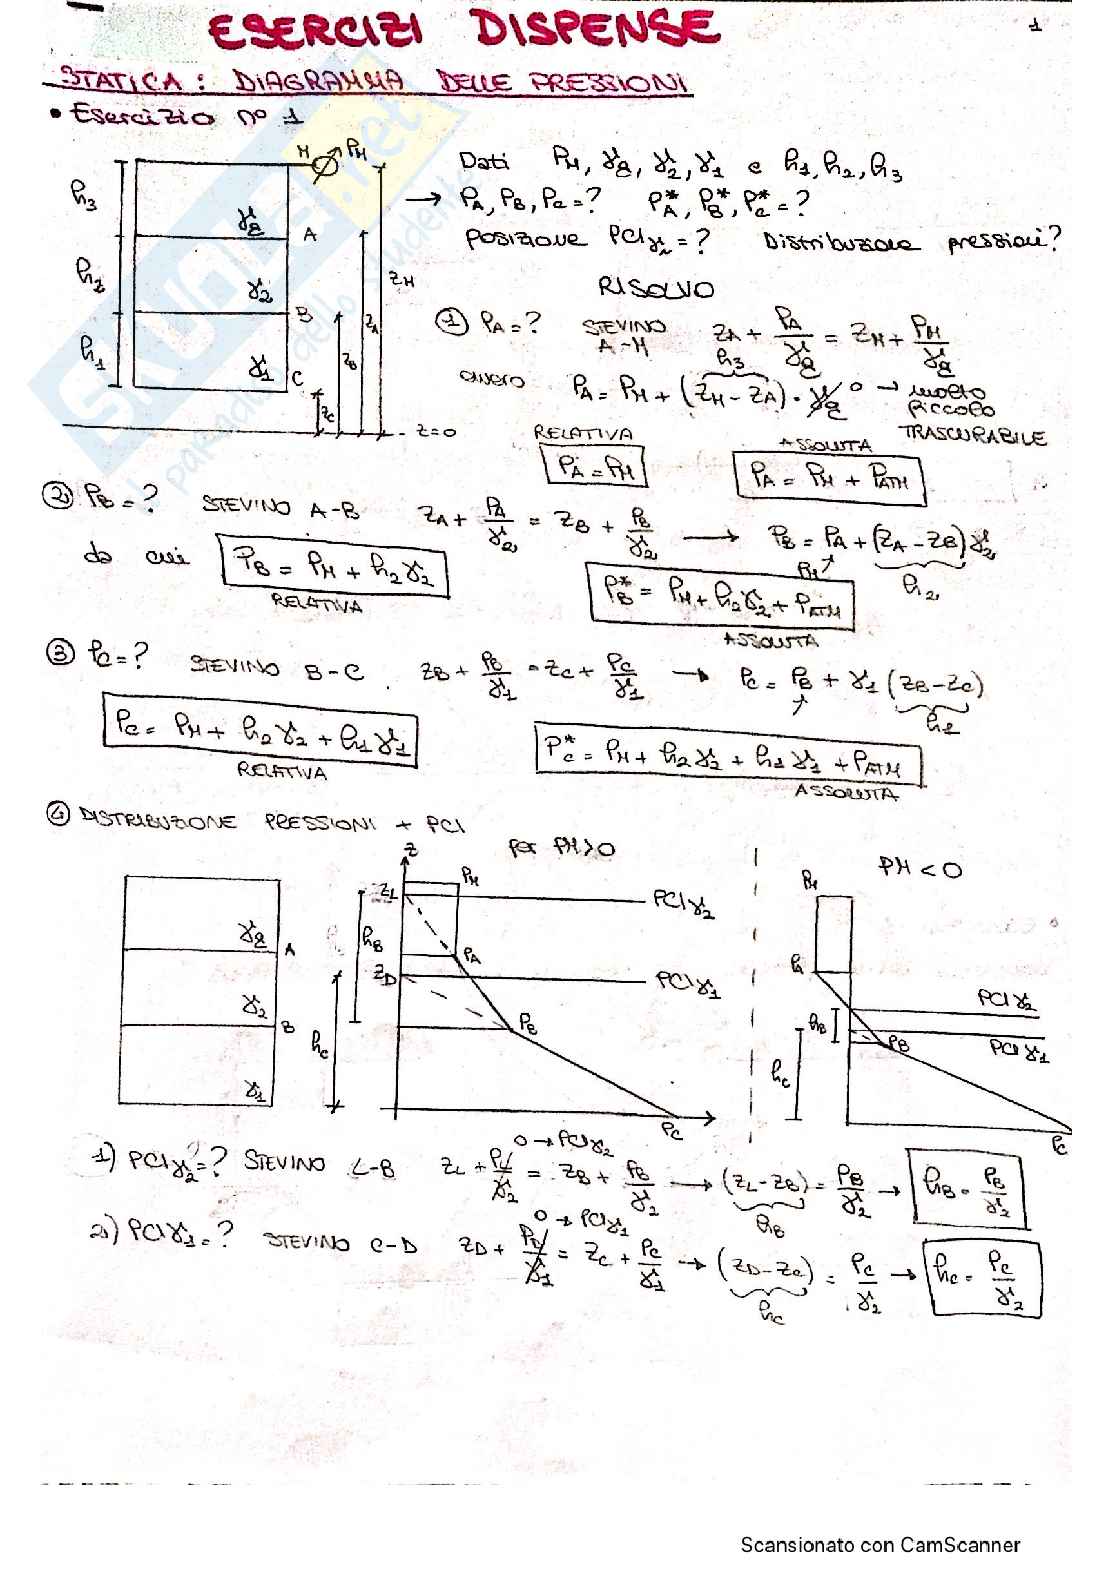 ESERCIZI DISPENSE
1
STATICA: DIAGRAMMA DELLE PRESSIONI
• Esercizio n° 1
M PM
h3
γg A
h2
γ2 B
h1
γ1 C
zM zA zB zC
z=0
SKUOLA.net
il paradiso dello studente
Dati PM, γg, γ2, γ1 e h1, h2, h3
→ PA, PB, PC = ? P*A, P*B, P*C = ?
POSIZIONE PCIγ2 = ? Distribuzione pressioni?
RISOLVO
① PA = ? STEVINO A-M zA + PA/γg = zM + PM/γg
ovvero PA = PM + (zM - zA) · γg 0 → molto piccolo TRASCURABILE
h3
RELATIVA
PA = PM
ASSOLUTA
PA = PM + PATM
② PB = ? STEVINO A-B zA + PA/γ2 = zB + PB/γ2 → PB = PA + (zA - zB)γ2
PM h2
da cui PB = PM + h2γ2
RELATIVA
P*B = PM + h2γ2 + PATM
ASSOLUTA
③ PC = ? STEVINO B-C. zB + PB/γ1 = zC + PC/γ1 → PC = PB + γ1 (zB - zC)
PC = PM + h2γ2 + h1γ1
RELATIVA
P*C = PM + h2γ2 + h1γ1 + PATM
ASSOLUTA
④ DISTRIBUZIONE PRESSIONI + PCI
per PM>0
PM<0
γg A
γ2 B
γ1
z
zL PM PCIγ2
hB
PA
zD PCIγ1
PB
hC
PC
PM
PA
PCIγ2
hB
PB
PCIγ1
hC
PC
1) PCIγ2 = ? STEVINO L-B zL + PL/γ2 = zB + PB/γ2 → (zL - zB) = PB/γ2 → hB = PB/γ2
0 → PCIγ2
hB
2) PCIγ1 = ? STEVINO C-D zD + PD/γ1 = zC + PC/γ1 → (zD - zC) = PC/γ2 → hC = PC/γ2
0 → PCIγ1
hC
Scansionato con CamScanner